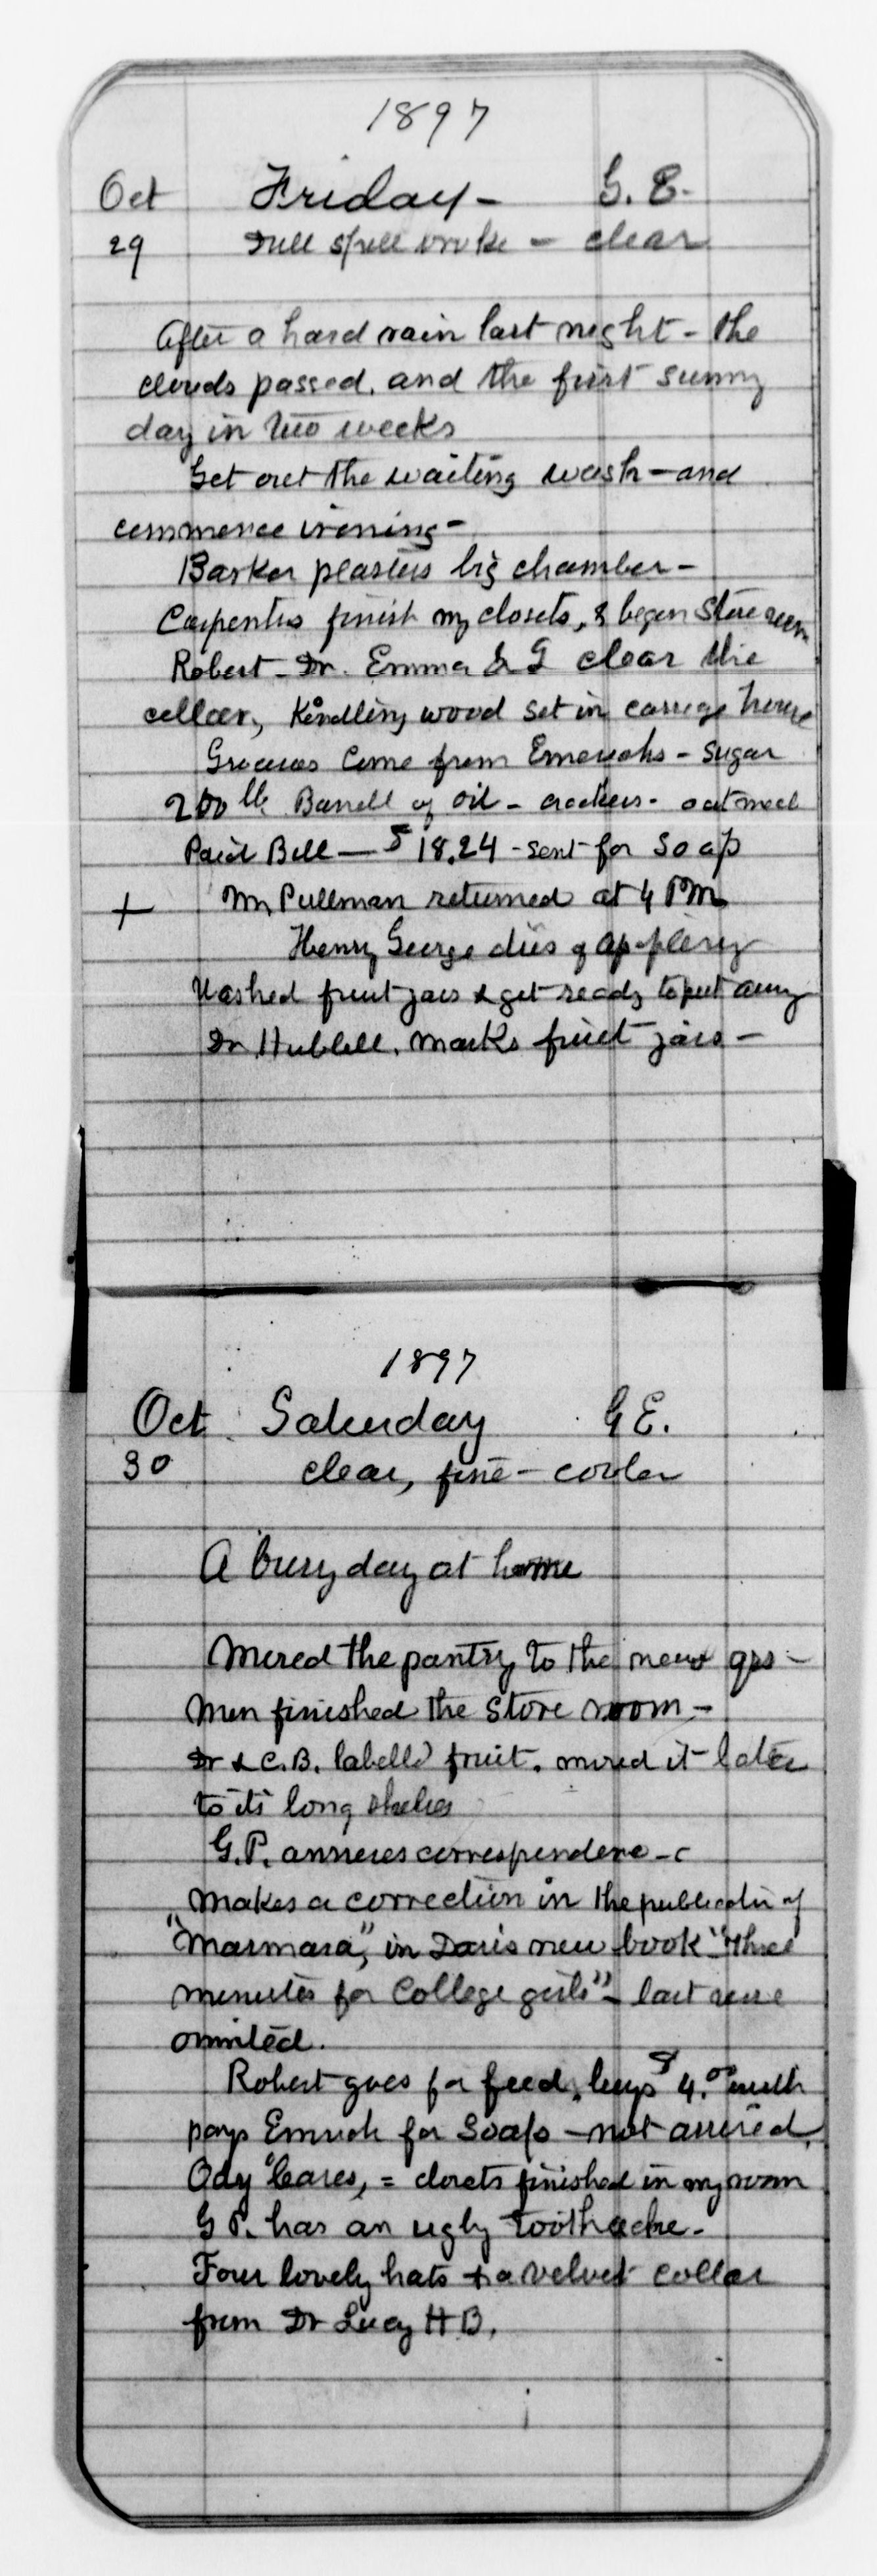 1897
Oct Friday - G. E.
29 Dull spell broke - clear
After a hard rain last night - the
clouds passed. and the first sunny
day in two weeks
Get out the waiting wash - and
commence ironing -
Barker plasters big chamber -
Carpenters finish my closets, & begin Store room
Robert - Dr. Emma & G clear the
cellar, Kindling wood set in carriage house
Groceries Come from - Sugar
200 lb Barrell of oil - crackers - oatmeal
Paid Bill — $18.24 - sent for soap
+ Mr Pullman returned at 4 PM
Henry George dies of apoplexy
Washed fruit jars & get ready to put away
Dr. Hubbell. marks fruit jars -
1897
Oct Saturday G E.
30 clear, fine - cooler
A busy day at home
Moved the pantry to the new qrs -
Men finished the Store room -
Dr & C.B. labelled fruit. moved it later
to its long shelves
G.P. answers correspondence -
Makes a correction in the publication of
"Marmara", in Davis new book "Three
minutes for College girls" - last verse
omited.
Robert goes for feed, buys $4.00 worth
pays for Soap - not arrived.
Ody leaves, = closets finished in my room
G P. has an ugly toothache -
Four lovely hats & a velvet collar
from Dr Lucy H B.